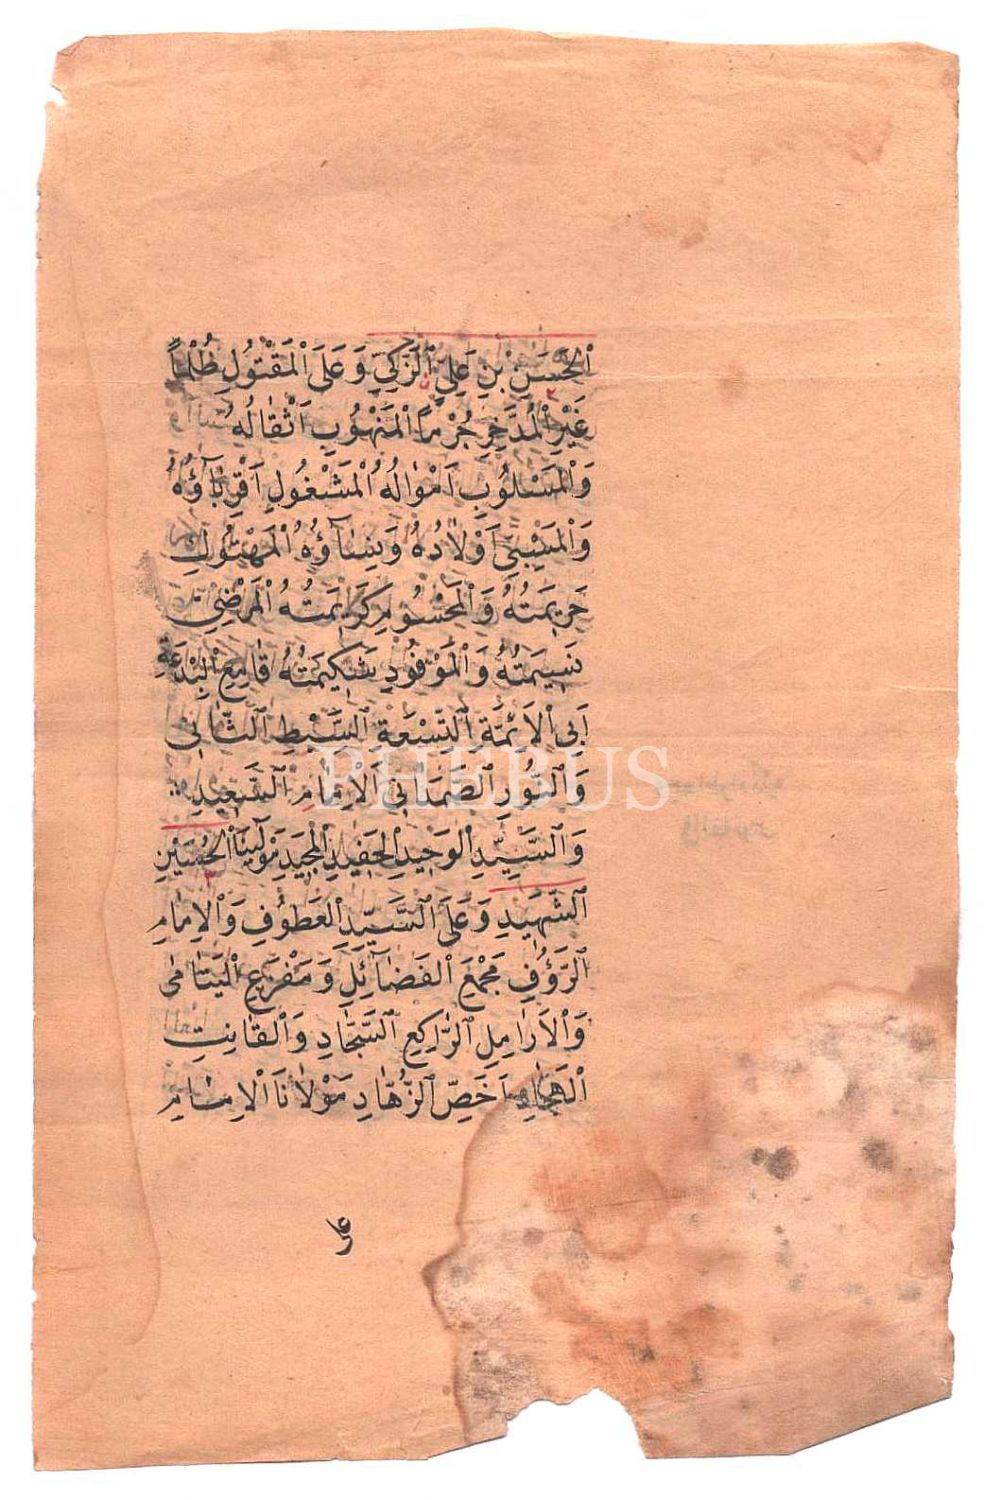 اْلحَسَنِ بْنِ عَلِيٍّ اْلزَكِيِّ وَعَلَى اْلمَقْتُولِ ظُلْماً
غَيْرِ اْلمُدَّخِرِ جُرْماً اْلمَنْهُوبِ اَثْقَالُهُ
وَاْلمَسْلُوبِ اَمْوَالُهُ اْلمَشْغُولِ اَقْرِبَآؤُهُ
وَاْلمَسْبِيِّ اَوْلَادُهُ وَنِسَآؤُهُ اْلمَهْتُوكِ
حَرِيمَتُهُ وَاْلمَحْسُومِ كَرِيمَتُهُ اْلمَرْضِيِّ
نَسِيمَتُهُ وَاْلمَوْفُودِ شَكِيمَتُهُ قَامِعِ اْلبِدْعَةِ
اَبِي اْلاَئِمَّةِ اْلتِّسْعَةِ اْلسِّبْطِ اْلثَّانِي
وَاْلنُّورِ اْلصَّمَدَانِي اَلْاِمَامِ اْلسَّعِيدِ
وَاْلسَّيِّدِ اْلوَحِيدِ اْلحَفِيدِ اْلمَجِيدِ مَوْلَينَا اْلحُسَيْنِ
اْلشَّهِيدِ وَعَلَى اْلسَّيِّدِ اْلعَطُوفِ وَاْلاِمَامِ
اْلرَّؤُفِ مَجْمَعِ اْلفَضَآئِلِ وَمَفْزَعِ اْليَتَامَى
وَاْلاَرَامِلِ اْلرَّاكِعِ اْلسَّجَّادِ وَاْلقَانِتِ
اْلهَجَّادِ اَخَصِّ اْلزُّهَّادِ مَوْلَانَا اْلاِمَامِ
على
PHEBUS